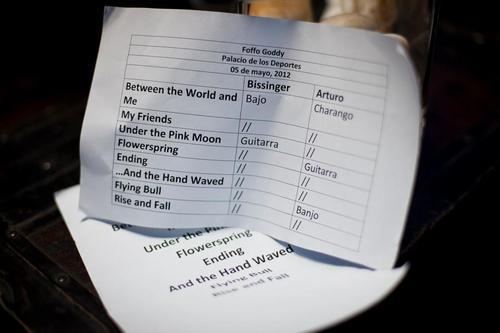 Foffo Goddy
Palacio de los Deportes
05 de mayo, 2012
Bissinger Arturo
Between the World and Me Bajo Charango
My Friends // //
Under the Pink Moon Guitarra //
Flowerspring // Guitarra
Ending // //
...And the Hand Waved // //
Flying Bull // Banjo
Rise and Fall // //
Under the
Flowerspring
Ending
And the Hand Waved
Flying Bull
Rise and Fall